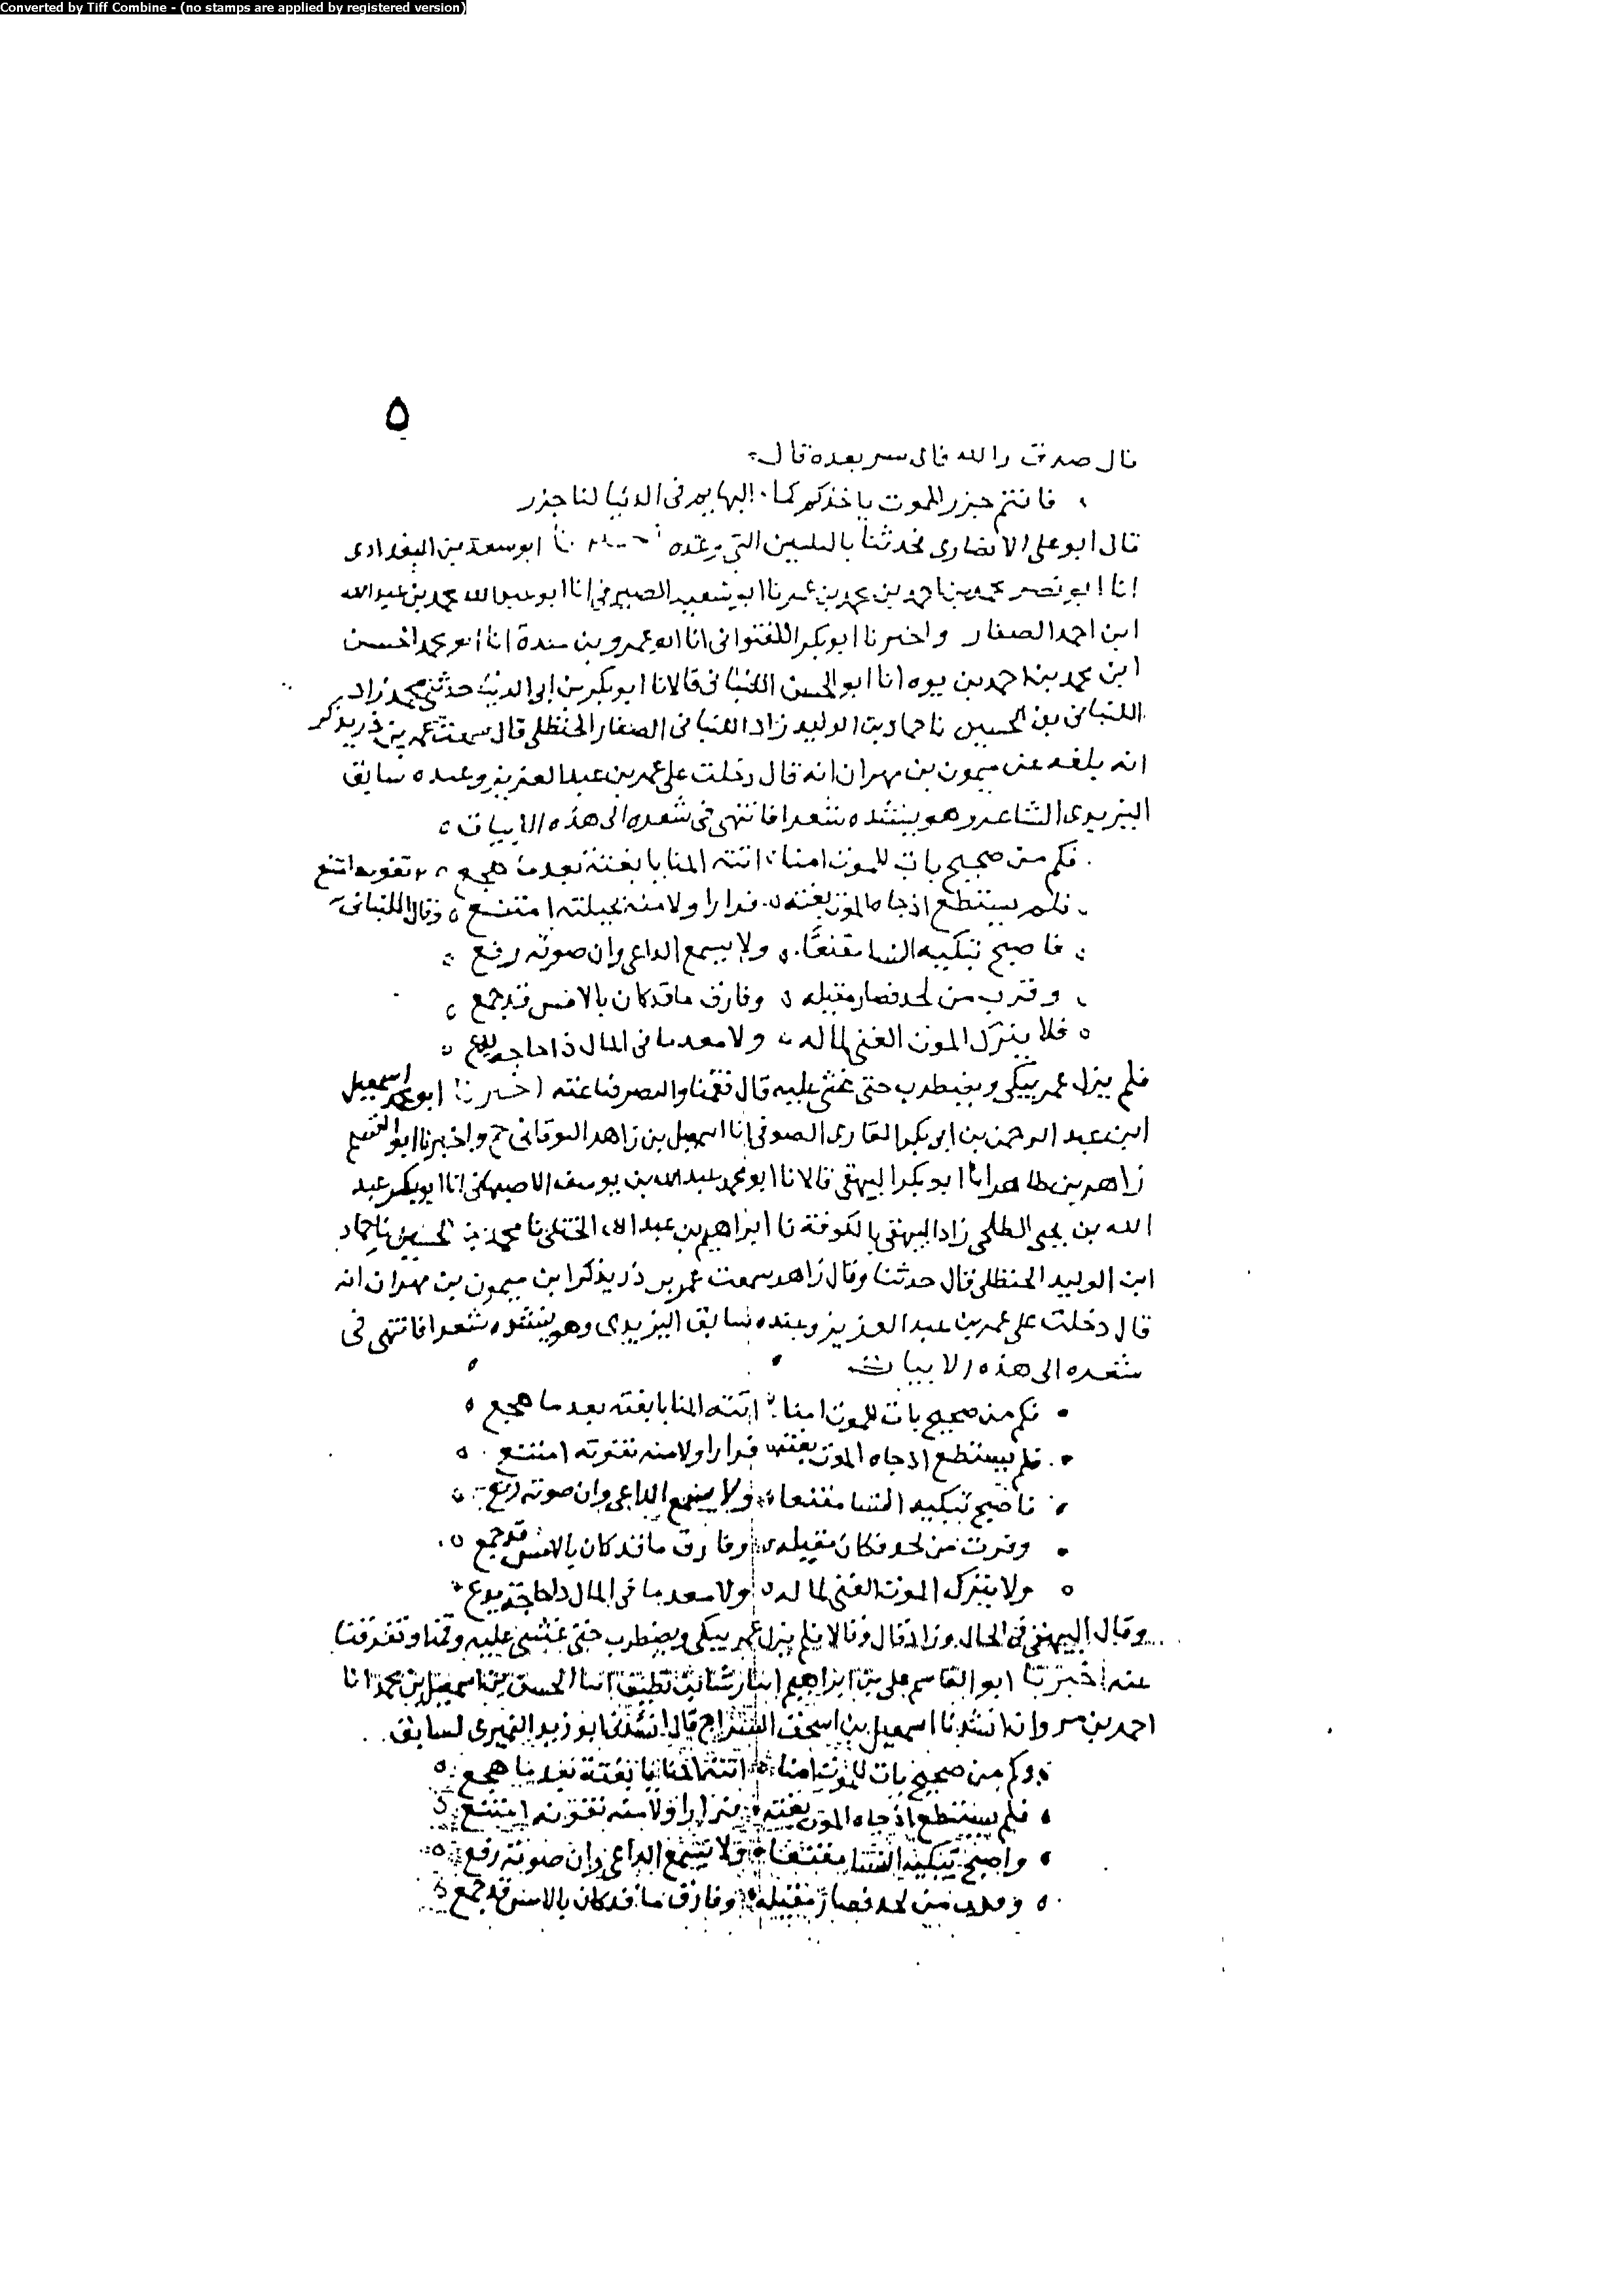 Converted by Tiff Combine - (no stamps are applied by registered version)
٥
قال صدقت والله قال سر بعده قال
فانتم جزر للموت ياخذكم كما البهايم فى الدنيا لنا جزر
قال ابو على الانصارى فحدثنا بالبلبين التى عنده ابو سعد بن البغدادى
انا ابو نصر محمد بن احمد بن محمد بن عمر نا ابو سعيد الصيرفى انا ابو عبد الله محمد بن عبد الله
ابن احمد الصفار واخبرنا ابو بكر اللفتوانى انا ابو عمرو بن مندة انا ابو محمد الحسن
ابن محمد بن احمد بن يوه انا ابو الحسن اللنبانى قالا نا ابو بكر بن ابى الدنيا حدثنى محمد زاد
اللنبانى بن الحسين نا حماد بن الوليد زاد اللنبانى الصفار الحنظلى قال سمعت عمر بن ذر يذكر
انه بلغه عن ميمون بن مهران انه قال دخلت على عمر بن عبد العزيز وعنده سابق
البزيدى الشاعر وهو ينشده شعرا فانتهى فى شعره الى هذه الابيات
فكم من صحيح بات للموت امنا اتته المنايا بغتة بعد ما هجع بقوته امتنع
فلم يستطع اذ جاه الموت بغتة فرارا ولا منه بحيلته امتنع وقال اللنبانى
فاصبح تبكيه النسا مقنعا ولا يسمع الداعى وان صوته رفع
وقرب من لحد فصار مقيله وفارق ما قد كان بالامس قد جمع
فلا يترك الموت الغنى لماله ولا معدما فى المال ذا حاجة يدع
فلم يزل عمر يبكى ويضطرب حتى غشى عليه قال فقمنا وانصرفنا عنه اخبرنا ابو محمد اسمعيل
ابن عبد الرحمن بن ابى بكر القارى الصوفى انا اسمعيل بن زاهد النوقانى ح واخبرنا ابو القسم
زاهر بن طاهر انا ابو بكر البيهقى قالا نا ابو محمد عبد الله بن يوسف الاصبهانى انا ابو بكر عبد
الله بن يحيى الطلحى زاد البيهقى بالكوفة نا ابراهيم بن عبد الله الختلى نا محمد بن الحسين نا حماد
ابن الوليد الحنظلى قال حدثنا وقال زاهد سمعت عمر بن ذر يذكر ابن ميمون بن مهران انه
قال دخلت على عمر بن عبد العزيز وعنده سابق البزيدى وهو ينشده شعرا فانتهى فى
شعره الى هذه الابيات
فكم من صحيح بات للموت امنا اتته المنايا بغتة بعد ما هجع
فلم يستطع اذ جاه الموت بغتة فرارا ولا منه بقوته امتنع
فاصبح تبكيه النسا مقنعا ولا يسمع الداعى وان صوته رفع
وقرب من لحد فكان مقيله وفارق ما قد كان بالامس قد جمع
ولا يترك الموت الغنى لماله ولا معدما فى المال ذا حاجة يدع
وقال البيهقى فى الحال وزاد قال وقالا فلم يزل عمر يبكى ويضطرب حتى غشى عليه وقمنا وتفرقنا
عنه اخبرنا ابو القاسم على بن ابراهيم انا رشا بن نظيف انا الحسن بن اسمعيل بن محمد انا
احمد بن مروان انشدنا اسمعيل بن اسحق السراج قال انشدنى ابو زيد النميرى لسابق
وكم من صحيح بات للموت امنا اتته المنايا بغتة بعد ما هجع
فلم يستطع اذ جاه الموت بغتة فرارا ولا منه بقوته امتنع
واصبح تبكيه النسا مقنعا ولا يسمع الداعى وان صوته رفع
وقرب من لحد فصار مقيله وفارق ما قد كان بالامس قد جمع